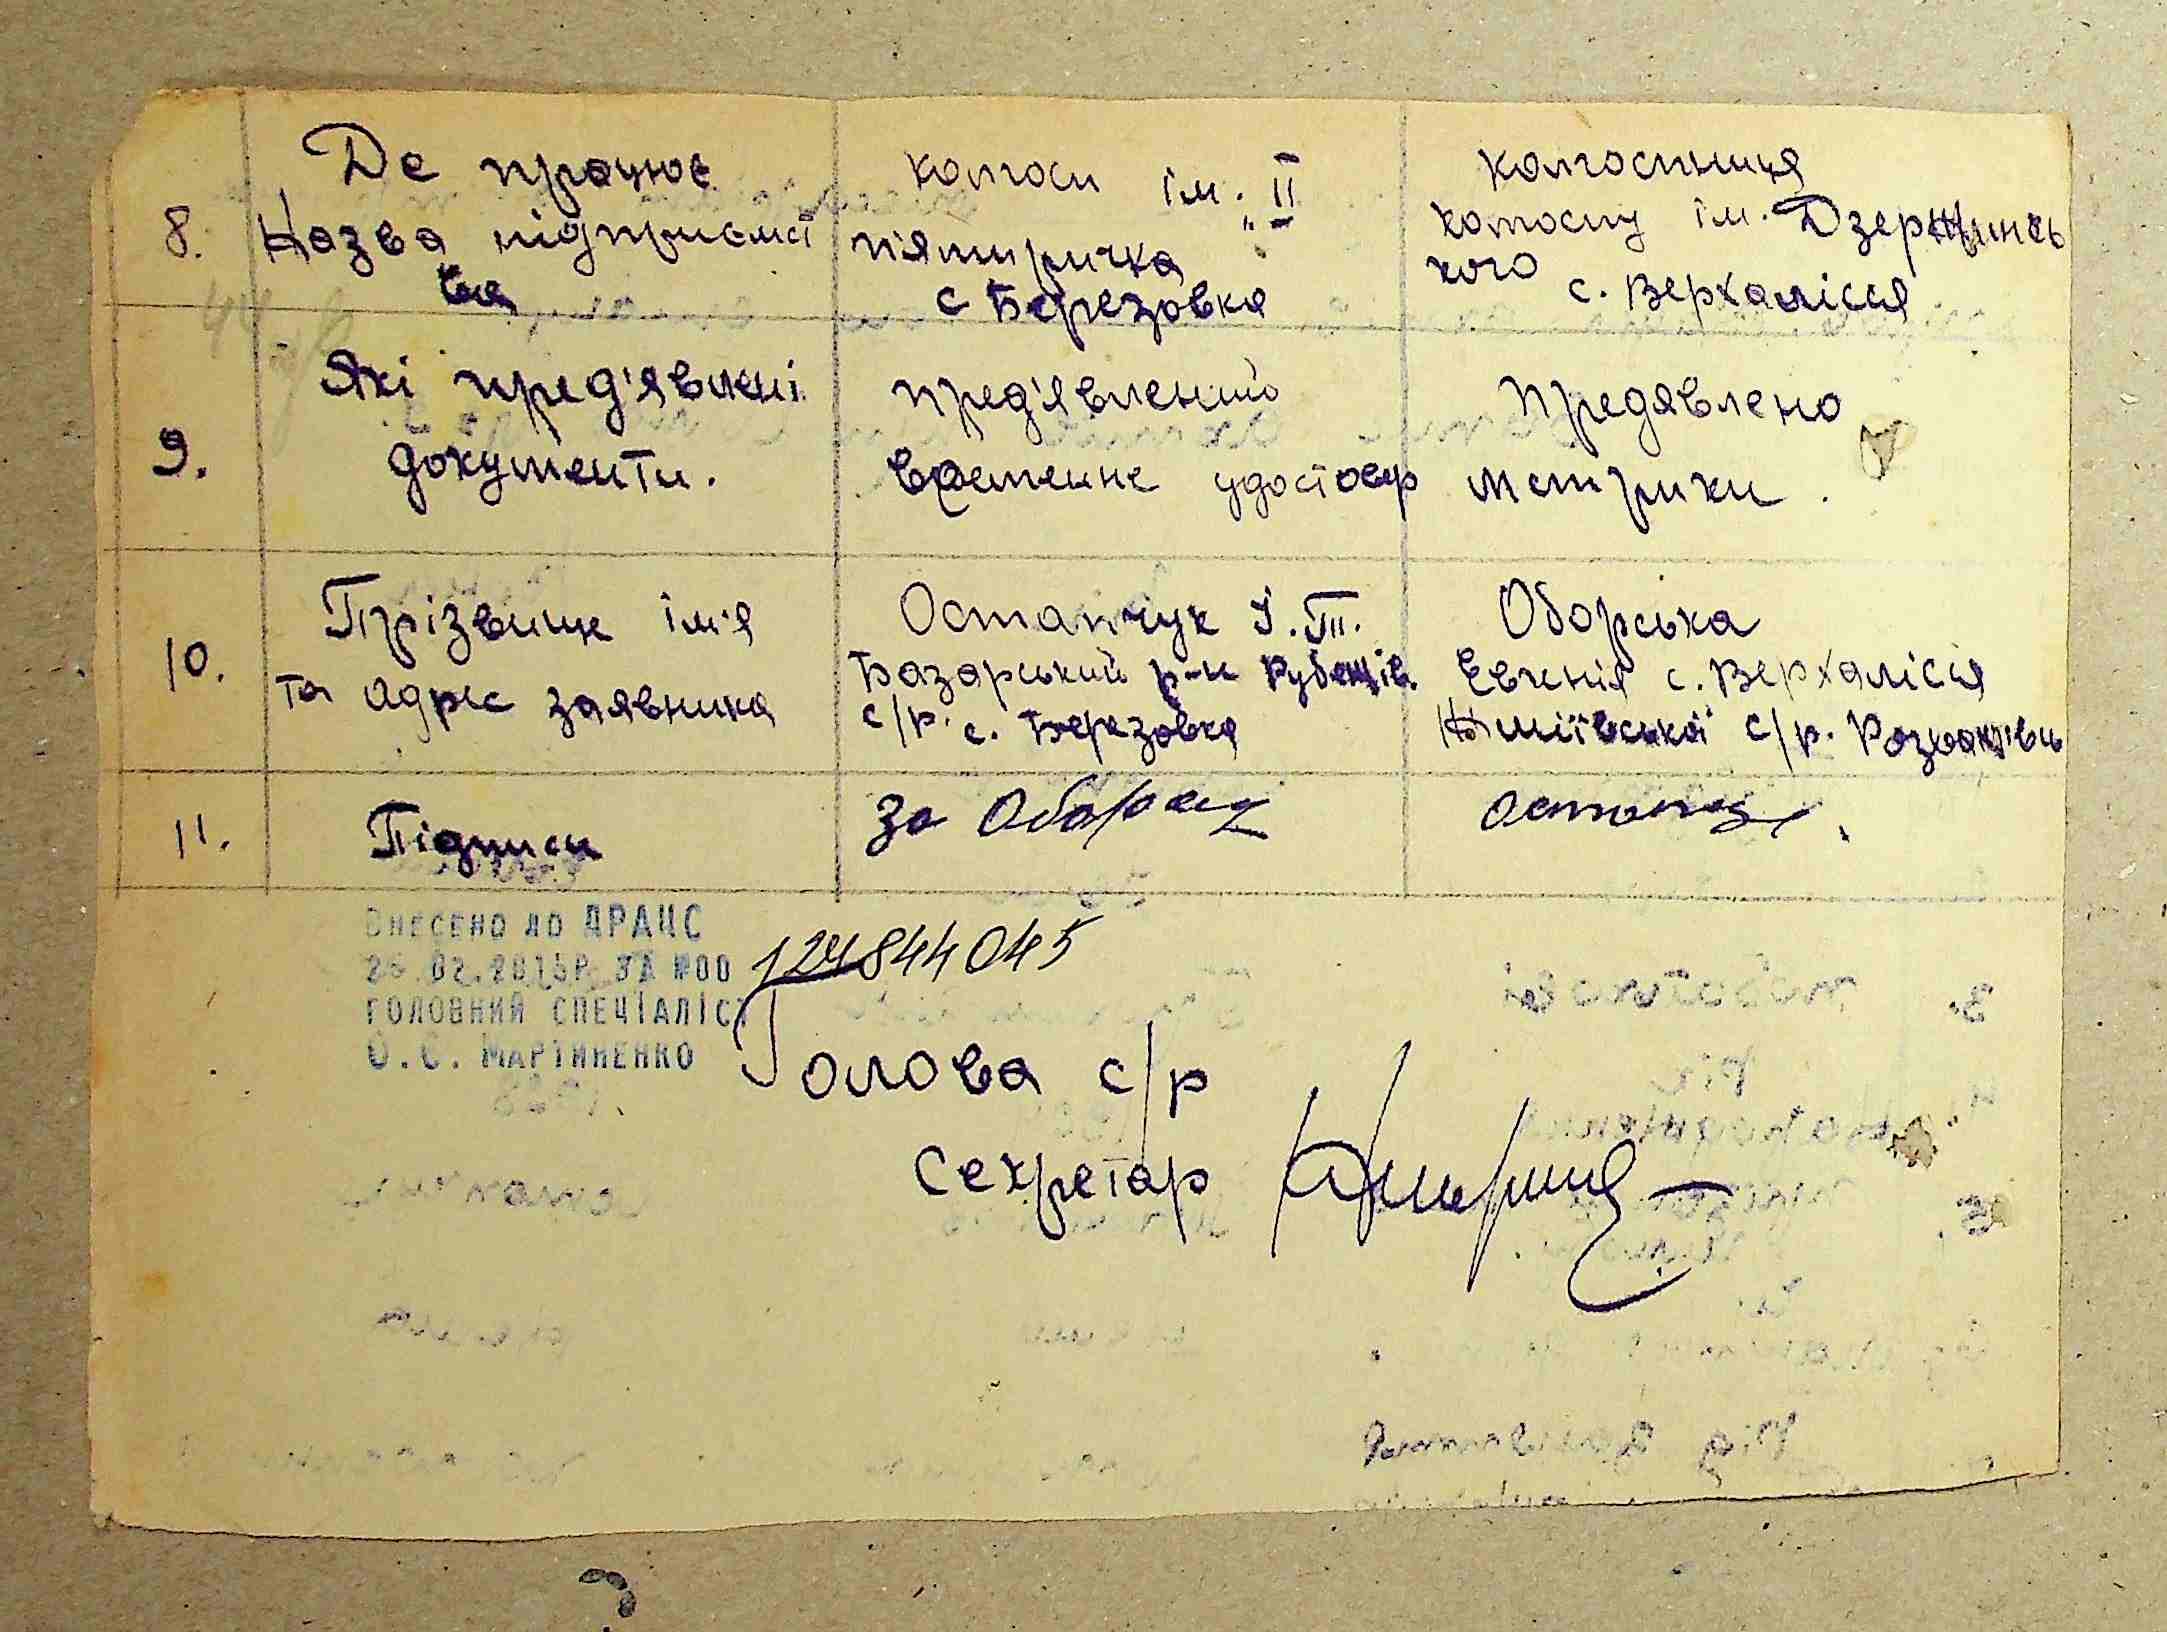 8.
Де працює
Назва підприємст
ва
колгосп ім. „II
пятирічка
с Березовка
колгоспниця
колгоспу ім. Дзержинсь
кого
с. Верхалісся
9.
Які пред'явлені
документи.
пред'явлений
временне удостовер
Предявлено
метрики.
10.
Прізвище ім'я
та адрес заявника
Остапчук І. П.
Базарський р-н Рубежів.
с/р. с. Березовка
Оборська
Евгенія с. Верхалісся
с/р. Розважівсь
11.
Підписи
за
ВНЕСЕНО ДО ДРАЦС
26.02.2015Р. ЗА №00
124844045
ГОЛОВНИЙ СПЕЦІАЛІСТ
О.С. МАРТИНЕНКО
Голова с/р
Секретар